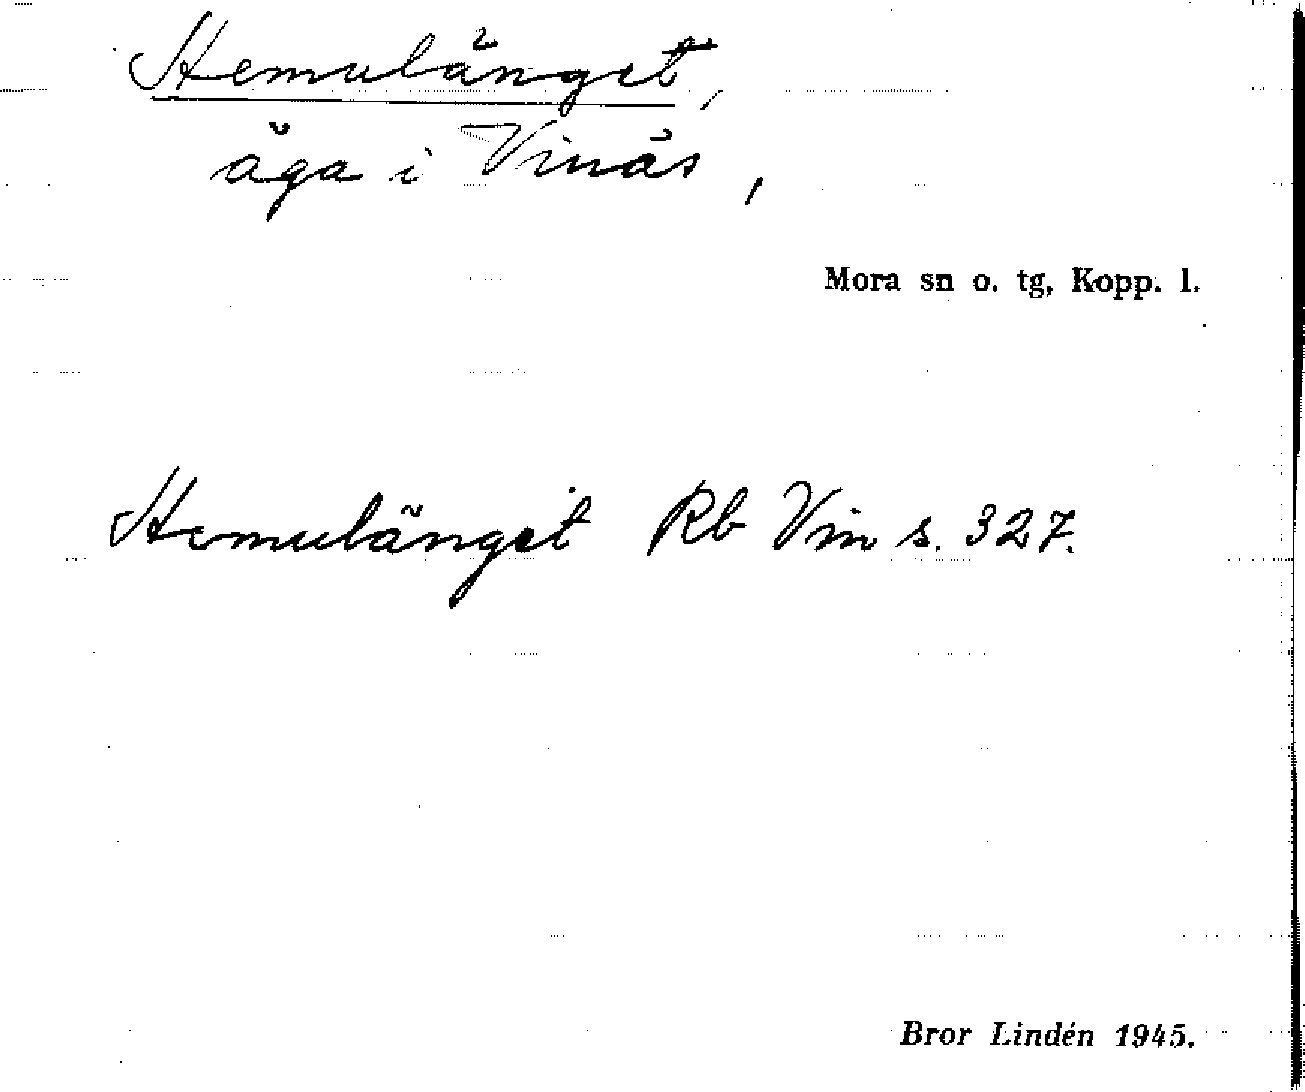 Hemulänget,
äga i Vinäs,
Mora sn o. tg, Kopp. l.
Hemulänget Rb Vin s. 327.
Bror Lindén 1945.